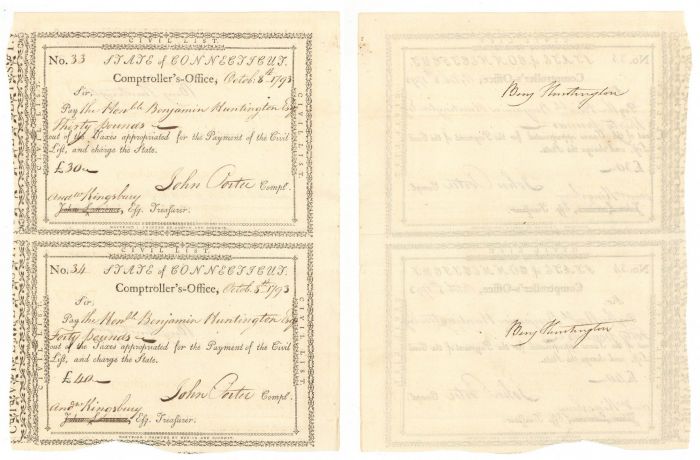 CIVIL LIST.
No. 33 STATE of CONNECTICUT.
Comptroller's-Office, Octob. 8th 1793
Sir,
Pay the Honble Benjamin Huntington Esq
Thirty pounds
out of the Taxes appropriated for the Payment of the Civil
List, and charge the State.
£30
John Porter Compt.
andw Kingsbury
John Lawrence, Esq. Treasurer.
HARTFORD: PRINTED BY HUDSON AND GOODWIN.
CIVIL LIST.
CIVIL LIST.
CIVIL LIST.
No. 34 STATE of CONNECTICUT.
Comptroller's-Office, Octob. 8th 1793
Sir,
Pay the Honbl Benjamin Huntington Esq
Forty pounds
out of the Taxes appropriated for the Payment of the Civil
List, and charge the State.
£40
John Porter Compt.
andw Kingsbury
John Lawrence, Esq. Treasurer.
HARTFORD: PRINTED BY HUDSON AND GOODWIN.
CIVIL LIST.
Benj Huntington
Benj Huntington